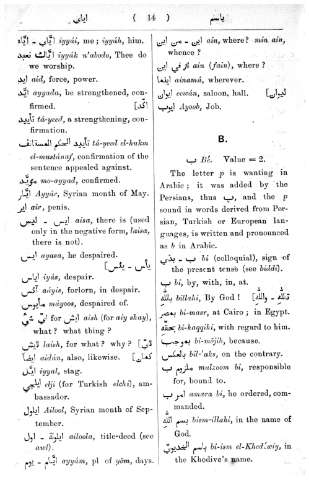 اياى ( 14 ) ياسم
اياى - اياه iyyâi, me ; iyyâh, him.
اياك نعبد iyyâk n'abodo, Thee do
we worship.
ايد aid, force, power.
ايد ayyada, he strengthened, con-
firmed. [اكد]
تاييد tá-yeed, a strengthening, con-
firmation.
تاييد الحكم المستانف tá-yeed el-hukm
el-mustánaf, confirmation of the
sentence appealed against.
مويد mo-ayyad, confirmed.
ايار Ayyâr, Syrian month of May.
اير air, penis.
ايس - ليس aisa, there is (used
only in the negative form, laisa,
there is not).
ايس ayasa, he despaired.
[يأس - يئس]
اياس iyâs, despair.
آئس aáyis, forlorn, in despair.
مايوس máyoos, despaired of.
ايش for اى شئ aish (for aiy shay),
what? what thing?
لايش laish, for what? why? [لأن]
ايضا aidân, also, likewise. [كمان]
ايل iyyal, stag.
ايلجى elji (for Turkish elchi), am-
bassador.
ايلول Ailool, Syrian month of Sep-
tember.
ايلولة - اول ailoola, title-deed (see
awl).
ايام - يوم ayyâm, pl of yôm, days.
اين - من اين ain, where? min ain,
whence?
اين or فين ain (fain), where?
اينما ainama, wherever.
ايوان eewân, saloon, hall. [ليوان]
ايوب Ayoob, Job.
B.
ب Bé. Value = 2.
The letter p is wanting in
Arabic ; it was added by the
Persians, thus پ, and the p
sound in words derived from Per-
sian, Turkish or European lan-
guages, is written and pronounced
as b in Arabic.
ب - بدى bi (colloquial), sign of
the present tense (see biddi).
ب bi, by, with, in, at.
بالله billahi, By God ! [تالله - والله]
بمصر bi-masr, at Cairo ; in Egypt.
بحقه bi-haqqihi, with regard to him.
بموجب bi-môjib, because.
بالعكس bil-'aks, on the contrary.
ملزوم ب malzoom bi, responsible
for, bound to.
امر ب amara bi, he ordered, com-
manded.
بسم الله bism-illahi, in the name of
God.
باسم الخديوى bi-ism el-Khodêwiy, in
the Khedive's name.